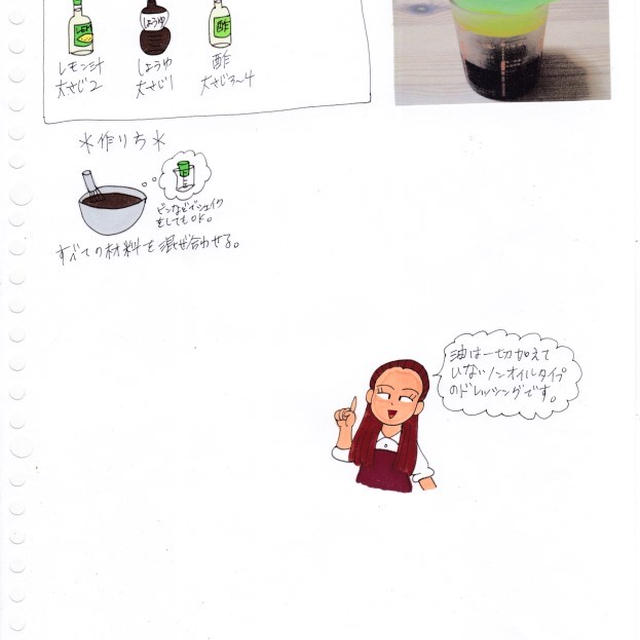 レモン汁
大さじ2
しょうゆ
しょうゆ
大さじ1
酢
酢
大さじ3〜4
*作り方*
ビンなどでシェイク
をしてもOK。
すべての材料を混ぜ合わせる。
油は一切加えて
いないノンオイルタイプ
のドレッシングです。